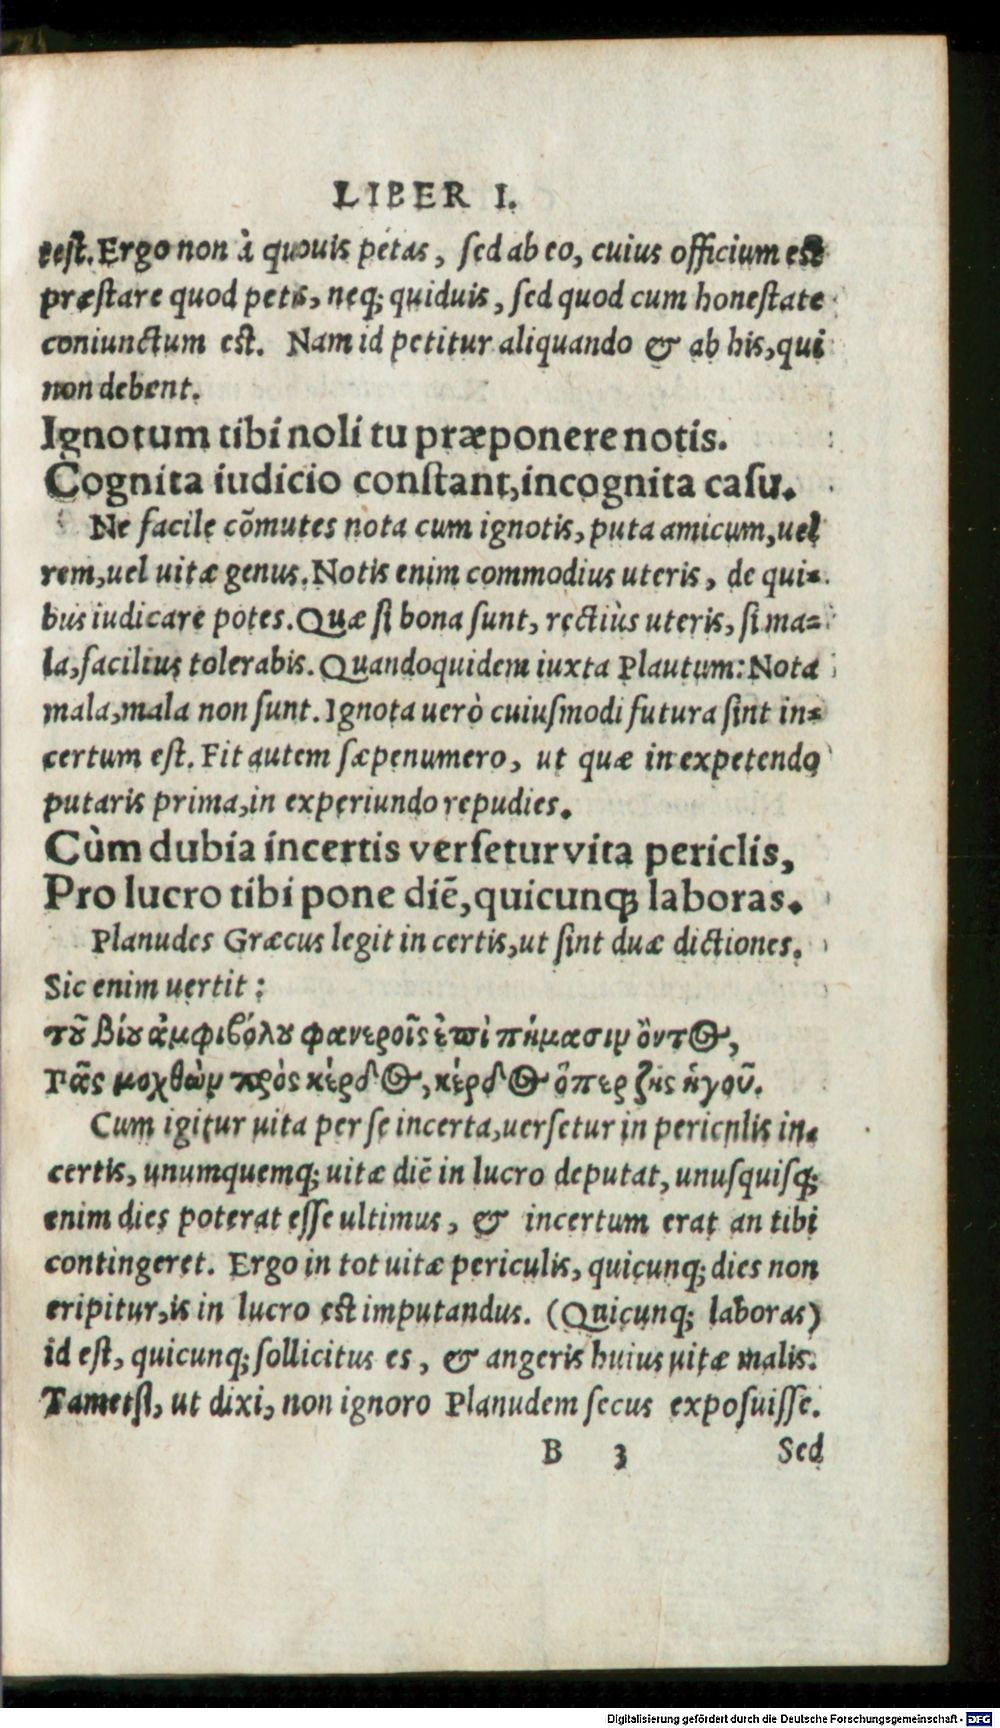 LIBER I.
test. Ergo non à quouis petas, sed ab eo, cuius officium est
præstare quod petis, neq; quiduis, sed quod cum honestate
coniunctum est. Nam id petitur aliquando & ab his, qui
non debent.
Ignotum tibi noli tu præponere notis.
Cognita iudicio constant, incognita casu.
Ne facile cõmutes nota cum ignotis, puta amicum, uel
rem, uel uitæ genus. Notis enim commodius uteris, de qui=
bus iudicare potes. Quæ si bona sunt, rectiùs uteris, si ma=
la, facilius tolerabis. Quandoquidem iuxta Plautum: Nota
mala, mala non sunt. Ignota uerò cuiusmodi futura sint in=
certum est. Fit autem sæpenumero, ut quæ in expetendo
putaris prima, in experiundo repudies.
Cùm dubia incertis versetur vita periclis,
Pro lucro tibi pone diẽ, quicunq; laboras.
Planudes Græcus legit in certis, ut sint duæ dictiones.
Sic enim uertit:
τοῦ βίου ἀμφιβόλου φανεροῖς ἐπὶ πήμασιν ὄντος,
Πᾶς μοχθῶν πρὸς κέρδος, κέρδος ὅπερ ζῇς ἡγοῦ.
Cum igitur uita per se incerta, uersetur in periculis in=
certis, unumquemq; uitæ diẽ in lucro deputat, unusquisq;
enim dies poterat esse ultimus, & incertum erat an tibi
contingeret. Ergo in tot uitæ periculis, quicunq; dies non
eripitur, is in lucro est imputandus. (Quicunq; laboras)
id est, quicunq; sollicitus es, & angeris huius uitæ malis.
Tametsi, ut dixi, non ignoro Planudem secus exposuisse.
B 3 Sed
Digitalisierung gefördert durch die Deutsche Forschungsgemeinschaft - DFG